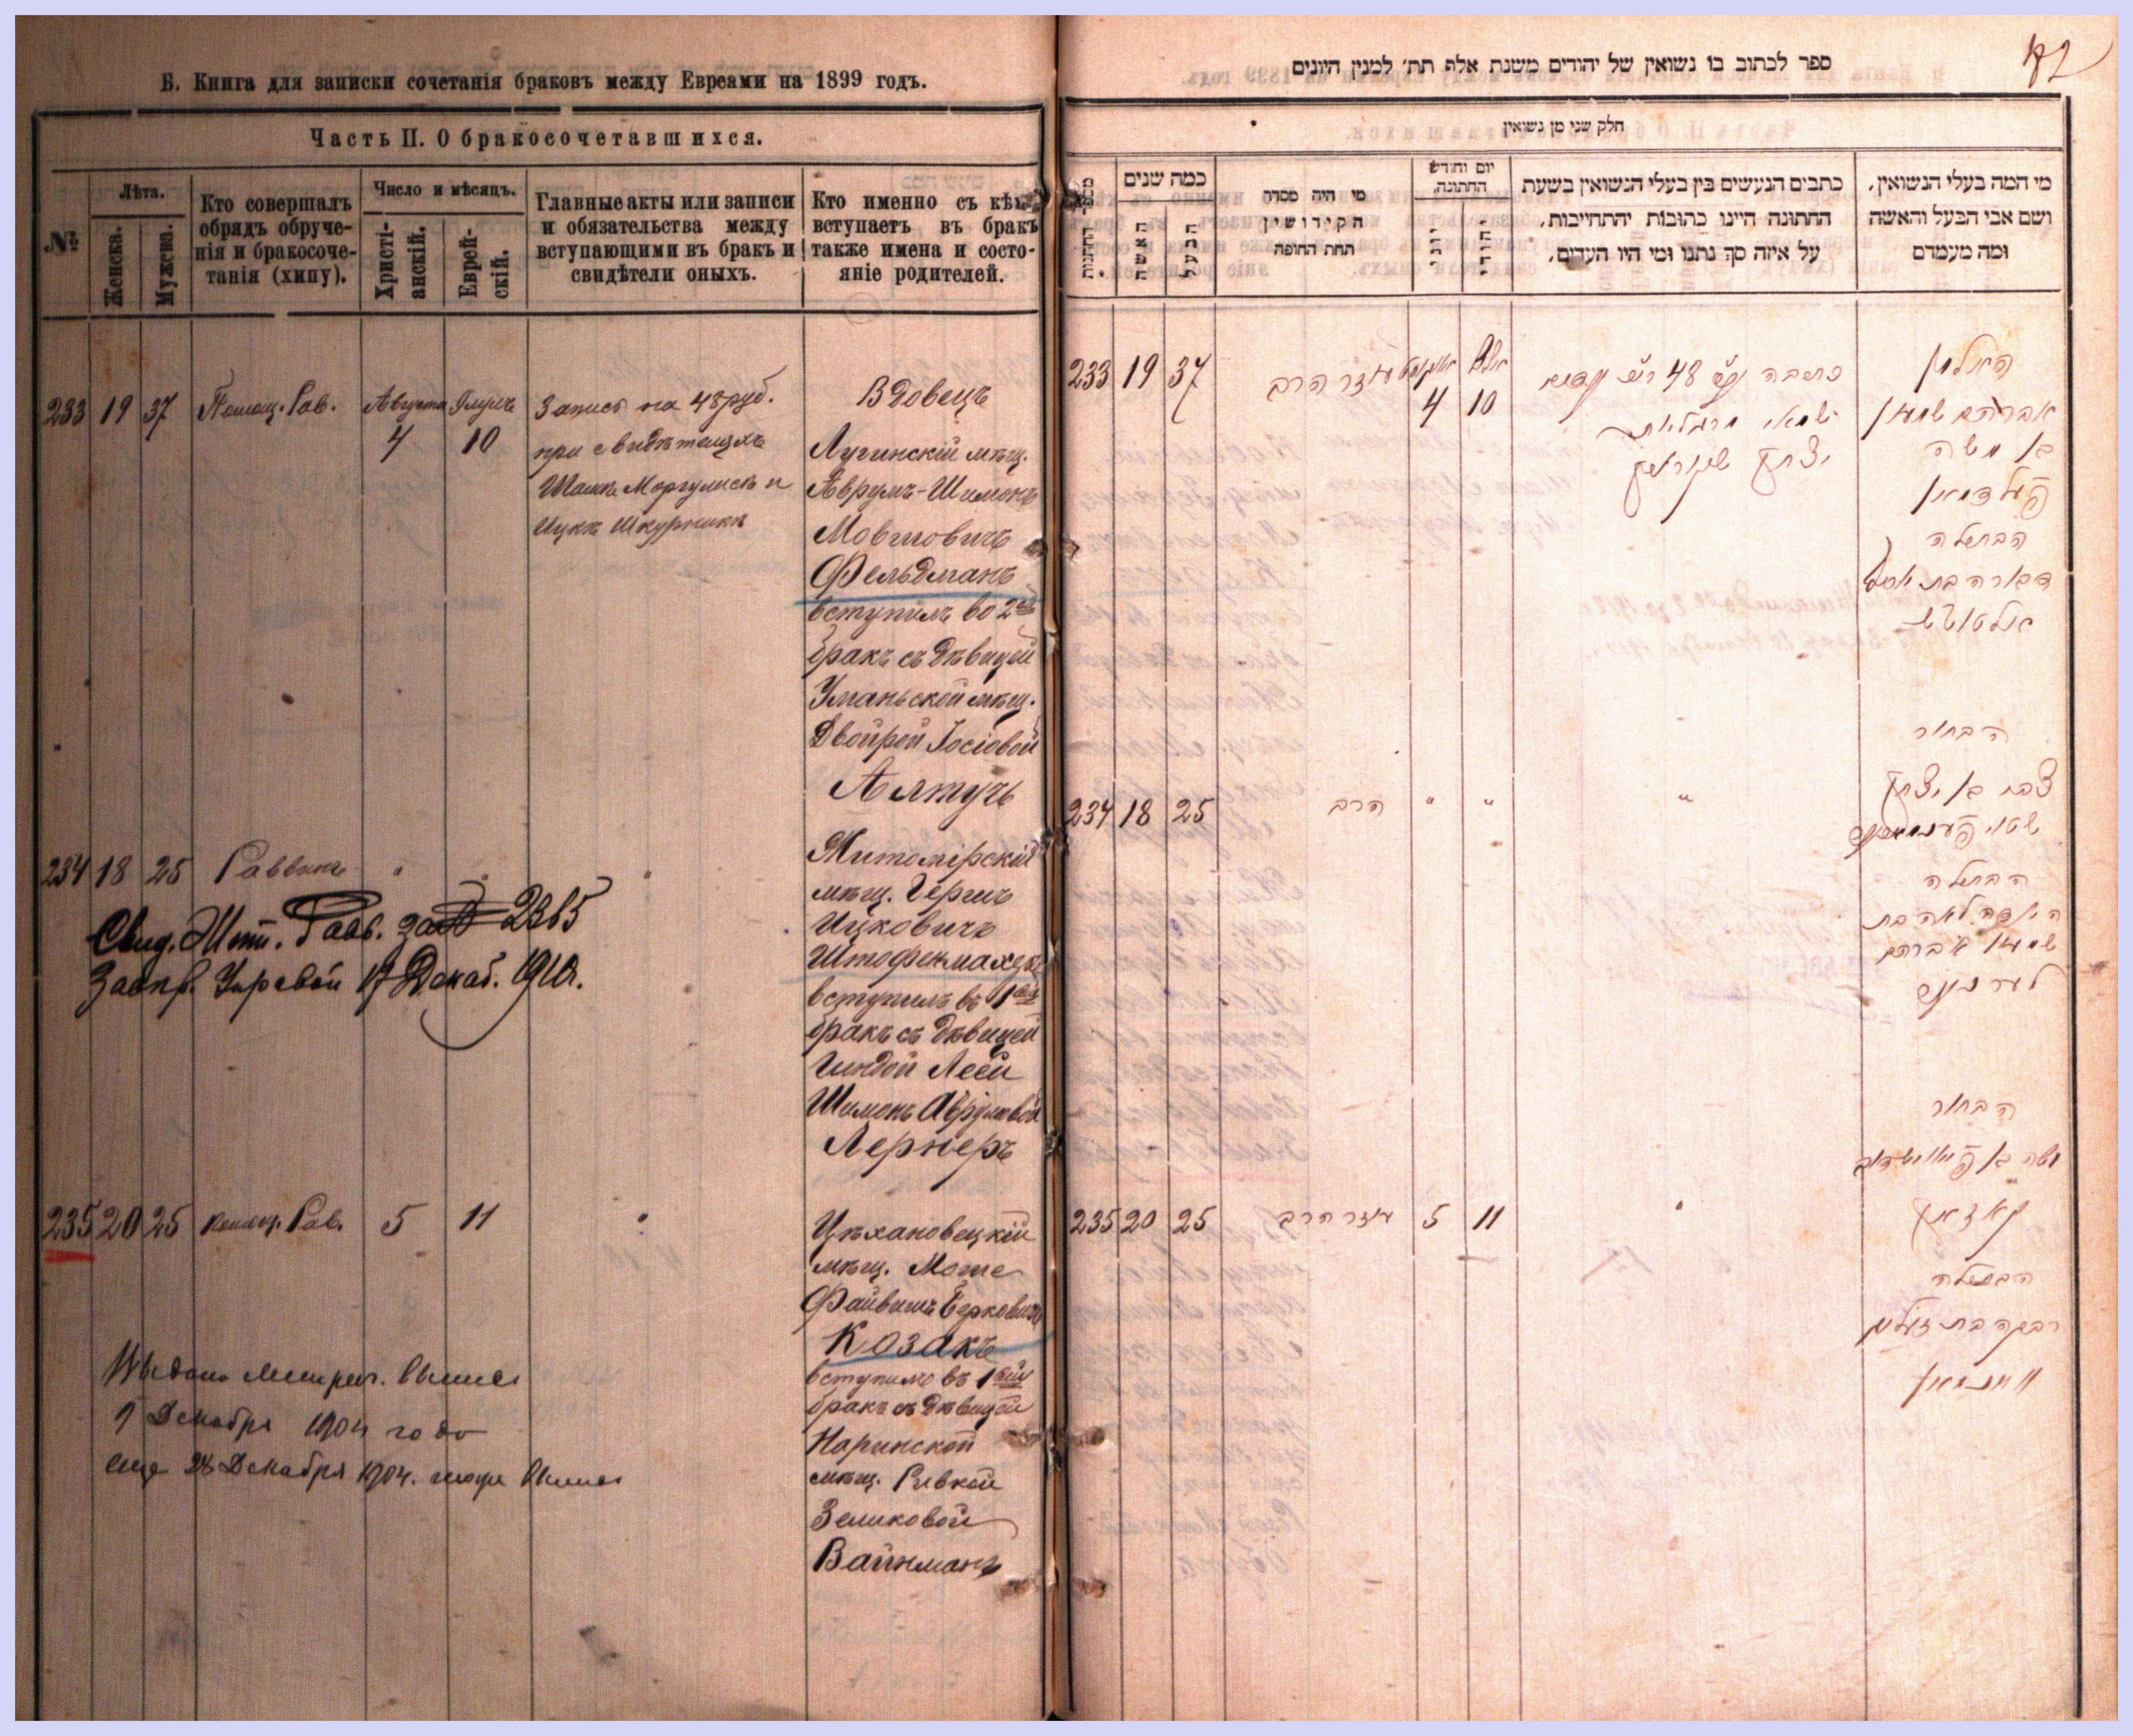 Б. Книга для записки сочетанія браковъ между Евреами на 1899 годъ.
Часть II. О бракосочетавшихся.
№
Лѣта.
Женска.
Мужска.
Кто совершалъ
обрядъ обруче-
нія и бракосоче-
танія (хипу).
Число и мѣсяцъ.
Христі-
анскій.
Еврей-
скій.
Главные акты или записи
и обязательства между
вступающими въ бракъ и
свидѣтели оныхъ.
Кто именно съ кѣмъ
вступаетъ въ бракъ
также имена и состо-
яніе родителей.
233 19 37 Помощ. Рав. Августа 4 Элулъ 10
Запись на 48 руб.
при свидѣтеляхъ
Шамъ Моргулисъ и
Ицкъ Шкурникъ
Вдовецъ
Лугинскій мѣщ.
Аврумъ-Шимонъ
Мовшовичъ
Фельдманъ
вступилъ во 2ой
бракъ съ дѣвицей
Уманьской мѣщ.
Двойрой Іосіовой
Алтучъ
234 18 25 Раввинъ " " "
Житомірскій
мѣщ. Гершъ
Ицковичъ
Штофенмахеръ
вступилъ въ 1ый
бракъ съ дѣвицей
Гиндой Леей
Шимонъ Аврумовой
Лернеръ
Свид. Жит. Равв. за № 2365
17 Декаб. 1910.
235 20 25 помощ. Рав. 5 11 "
Цѣхановецкій
мѣщ. Моше
Файвишъ Берковичъ
Козакъ
вступилъ въ 1ый
бракъ съ дѣвицей
Наринской
мѣщ. Ривкой
Зеликовой
Вайнманъ
Выдана метрич. выпись
9 Декабря 1904 года
еще 28 Декабря 1904. выпись
72
ספר לכתוב בו נשואין של יהודים משנת אלף תת׳ למנין היונים
חלק שני מן נשואין
מספר החתונות
כמה שנים
האשה
הבעל
מי היה מסדר
הקידושין
תחת החופה
יום וחודש
החתונה
יוני
יהודי
כתבים הנעשים בין בעלי הנשואין בשעת
החתונה היינו כתובות והתחייבות,
על איזה סך נתנו ומי היו העדים,
מי המה בעלי הנשואין,
ושם אבי הבעל והאשה
ומה מעמדם
233 19 37 עוזר הרב אויגוסט 4 אלול 10
כתובה 48
יצחק שקורניק
האלמן
אברהם שמעון
בן משה
פעלדמאן
הבתולה
דבורה בת יוסף
אלטוטש
234 18 25 הרב " " "
הבחור
צבי בן יצחק
הבתולה
הינדה לאה בת
שמעון אברהם
לערנער
235 20 25 עוזר הרב 5 11 "
הבחור
קאזאק
הבתולה
רבקה בת זעליג
וויינמאן